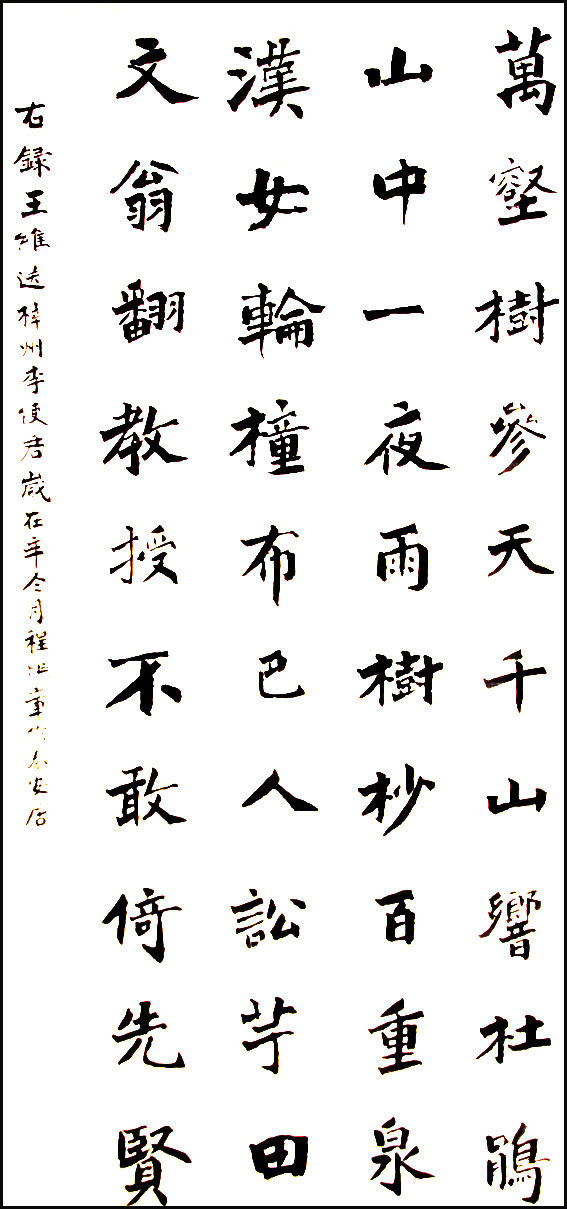 萬壑樹參天千山響杜鵑
山中一夜雨樹杪百重泉
漢女輪橦布巴人訟芋田
文翁翻教授不敢倚先賢
右録王維送梓州李使君歲在辛月程章安居